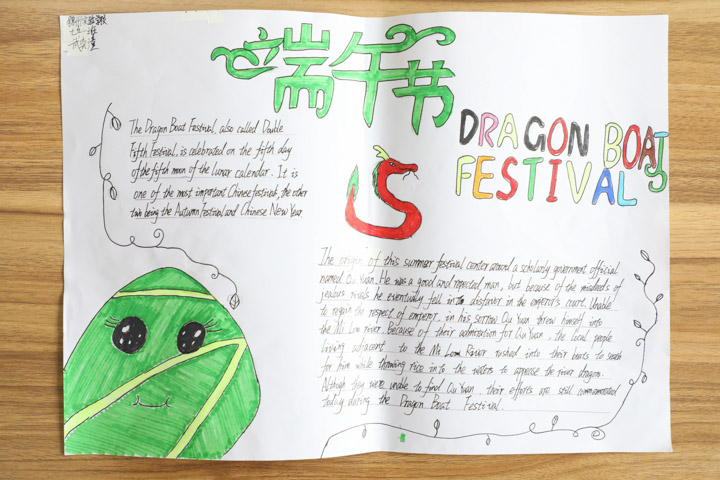 端午节
DRAGON BOAT
FESTIVAL
The Dragon Boat Festival, also called Double
Fifth Festival, is celebrated on the fifth day
of the fifth moon of the lunar calendar. It is
one of the most important Chinese festivals, the other
two being the Autumn Festival and Chinese New Year
The origin of this summer festival center around a scholarly government official
named Qu Yuan. He was a good and respected man, but because of the misdeeds of
jealous rivals he eventually fell in to disfavor in the emperor's court. Unable
to regain the respect of emperor, in his sorrow Qu Yuan threw himself into
the Mi Low river. Because of their admiration for Qu Yuan, the local people
living adjacent to the Mi Low River rushed into their boats to search
for him while throwing rice into the waters to appease the river dragon.
Although they were unable to find Qu Yuan, their efforts are still commemorated
today during the Dragon Boat Festival.